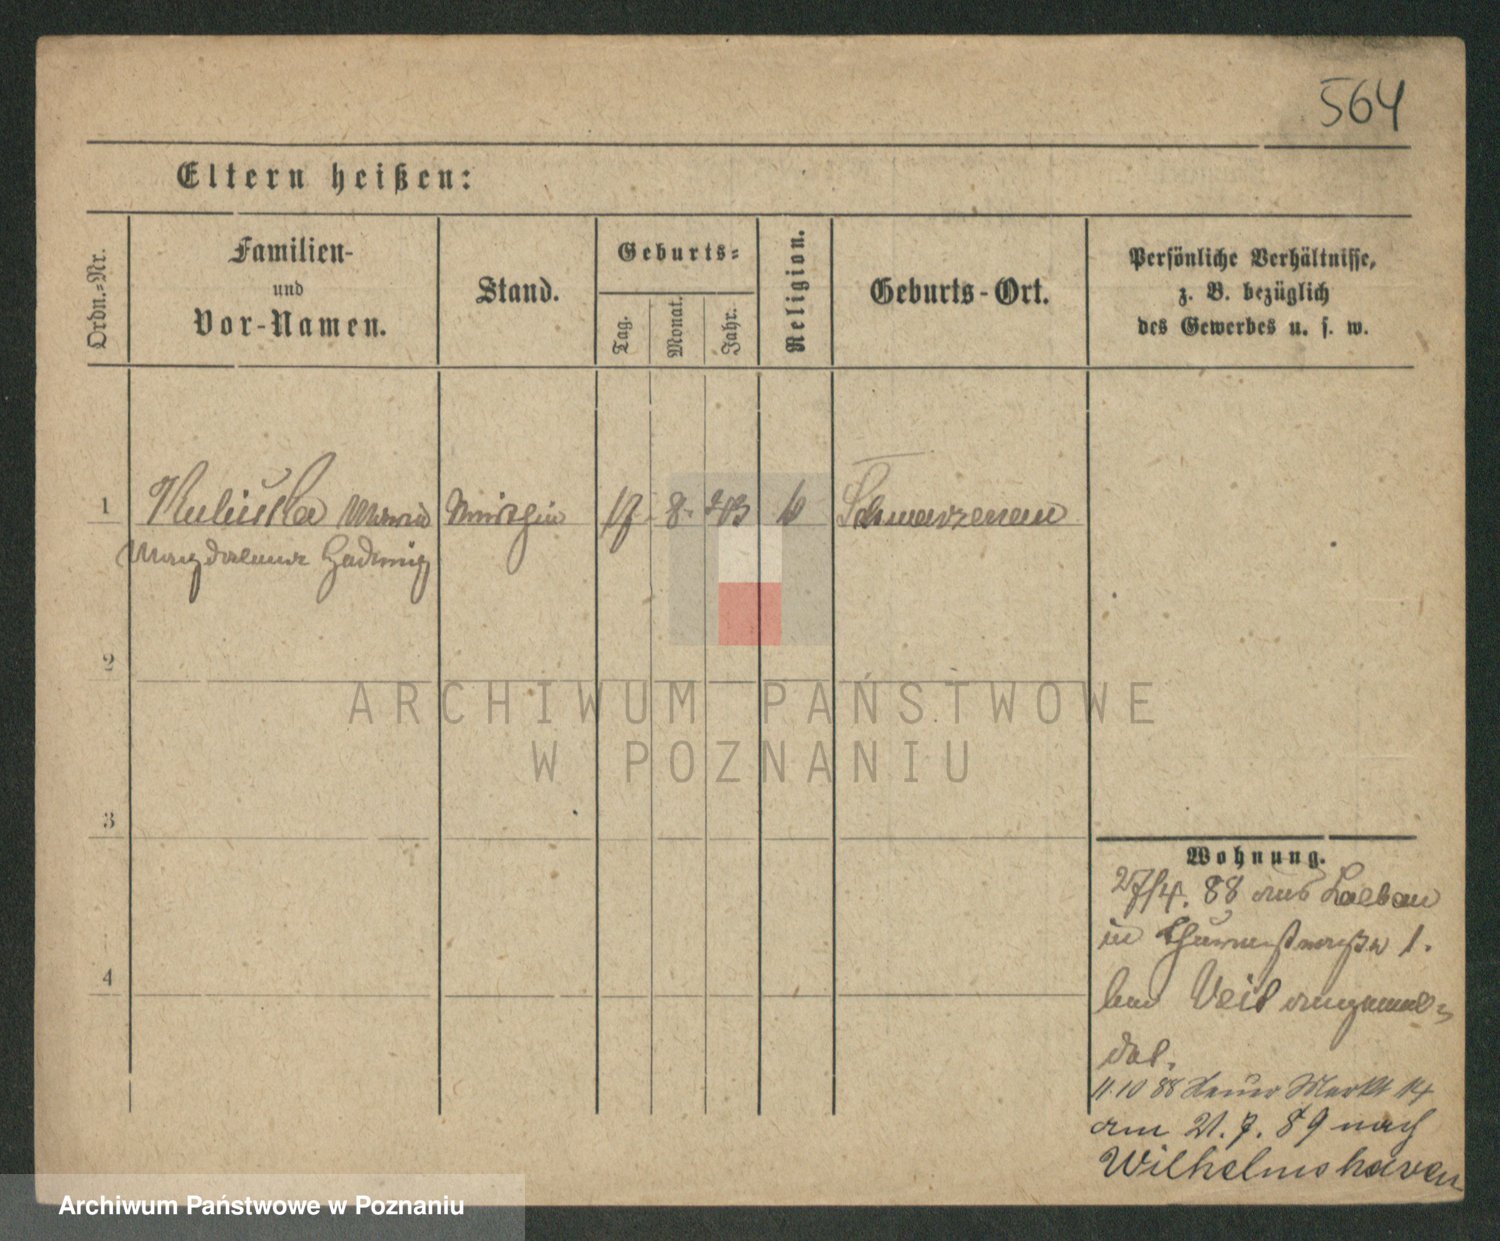 564
Eltern heißen:
Ordn.-Nr.
Familien-
und
Vor-Namen.
Stand.
Geburts-
Tag.
Monat.
Jahr.
Religion.
Geburts-Ort.
Persönliche Verhältnisse,
z. B. bezüglich
des Gewerbes u. s. w.
1 Maria 17 8.
Magdalena Hedwig
2
3
4
Wohnung.
27/4. 88 aus
in 1.
bei Veit angemel-
det.
11.10 88 Neuer Markt 14
am 21. 7. 89 nach
Wilhelmshaven
ARCHIWUM PAŃSTWOWE
W POZNANIU
Archiwum Państwowe w Poznaniu